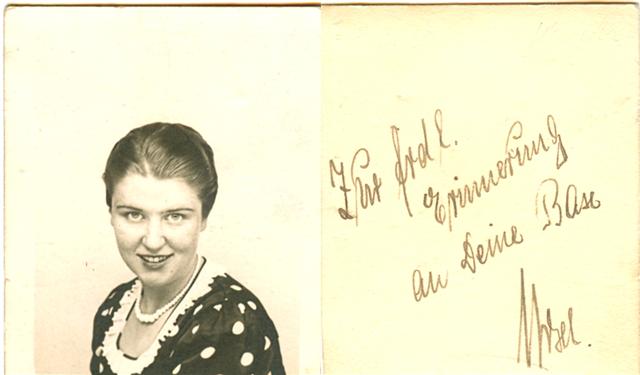 Zur frdl.
Erinnerung
an Deine Base